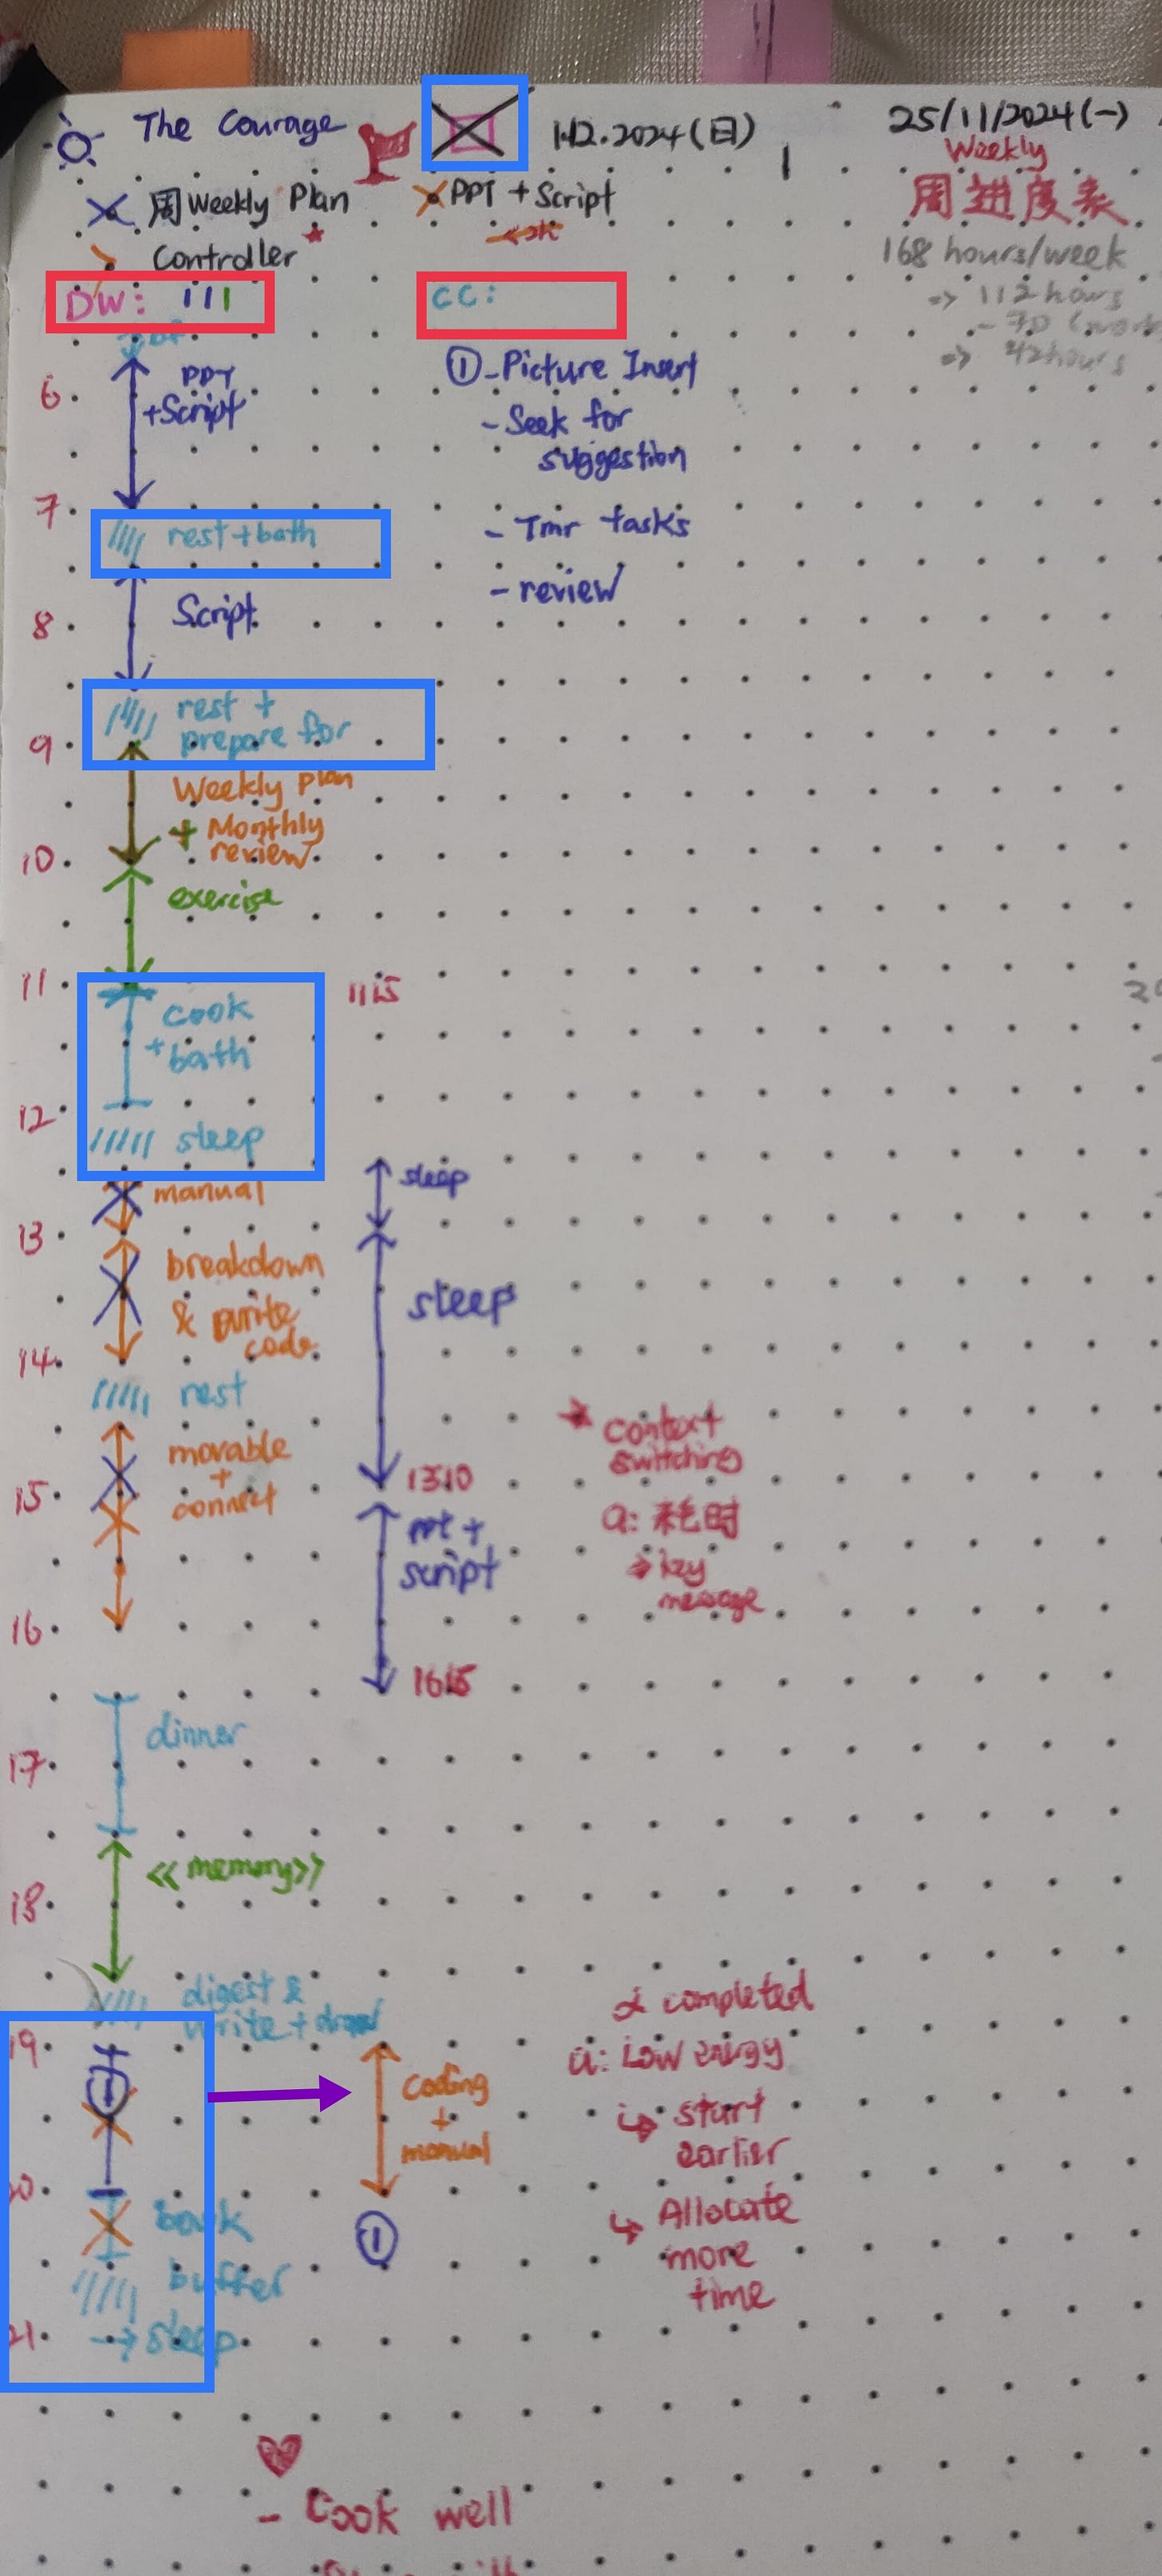 The Courage
1.12.2024(日)
25/11/2024(一)
Weekly
周进度表
168 hours/week
=> 112 hours
- 70 (work
=> 42 hours
周 Weekly Plan
PPT + Script
Controller
DW: III
CC:
① - Picture Insert
- Seek for
suggestion
- Tmr tasks
- review
6
PPT
+Script
7
rest + bath
8
Script
rest +
prepare for
9
Weekly plan
+ Monthly
review
10
exercise
11
1115
cook
+ bath
12
sleep
sleep
manual
13
breakdown
& write
code
sleep
14
rest
movable
+
connect
15
1510
→ Context
switching
a: 耗时
→ key
message
ppt +
script
16
1615
dinner
17
<<memory>>
18
digest &
write + draw
19
①
coding
+
manual
completed
a: Low energy
↳ start
earlier
↳ Allocate
more
time
20
①
buffer
21
→ sleep
- Cook well